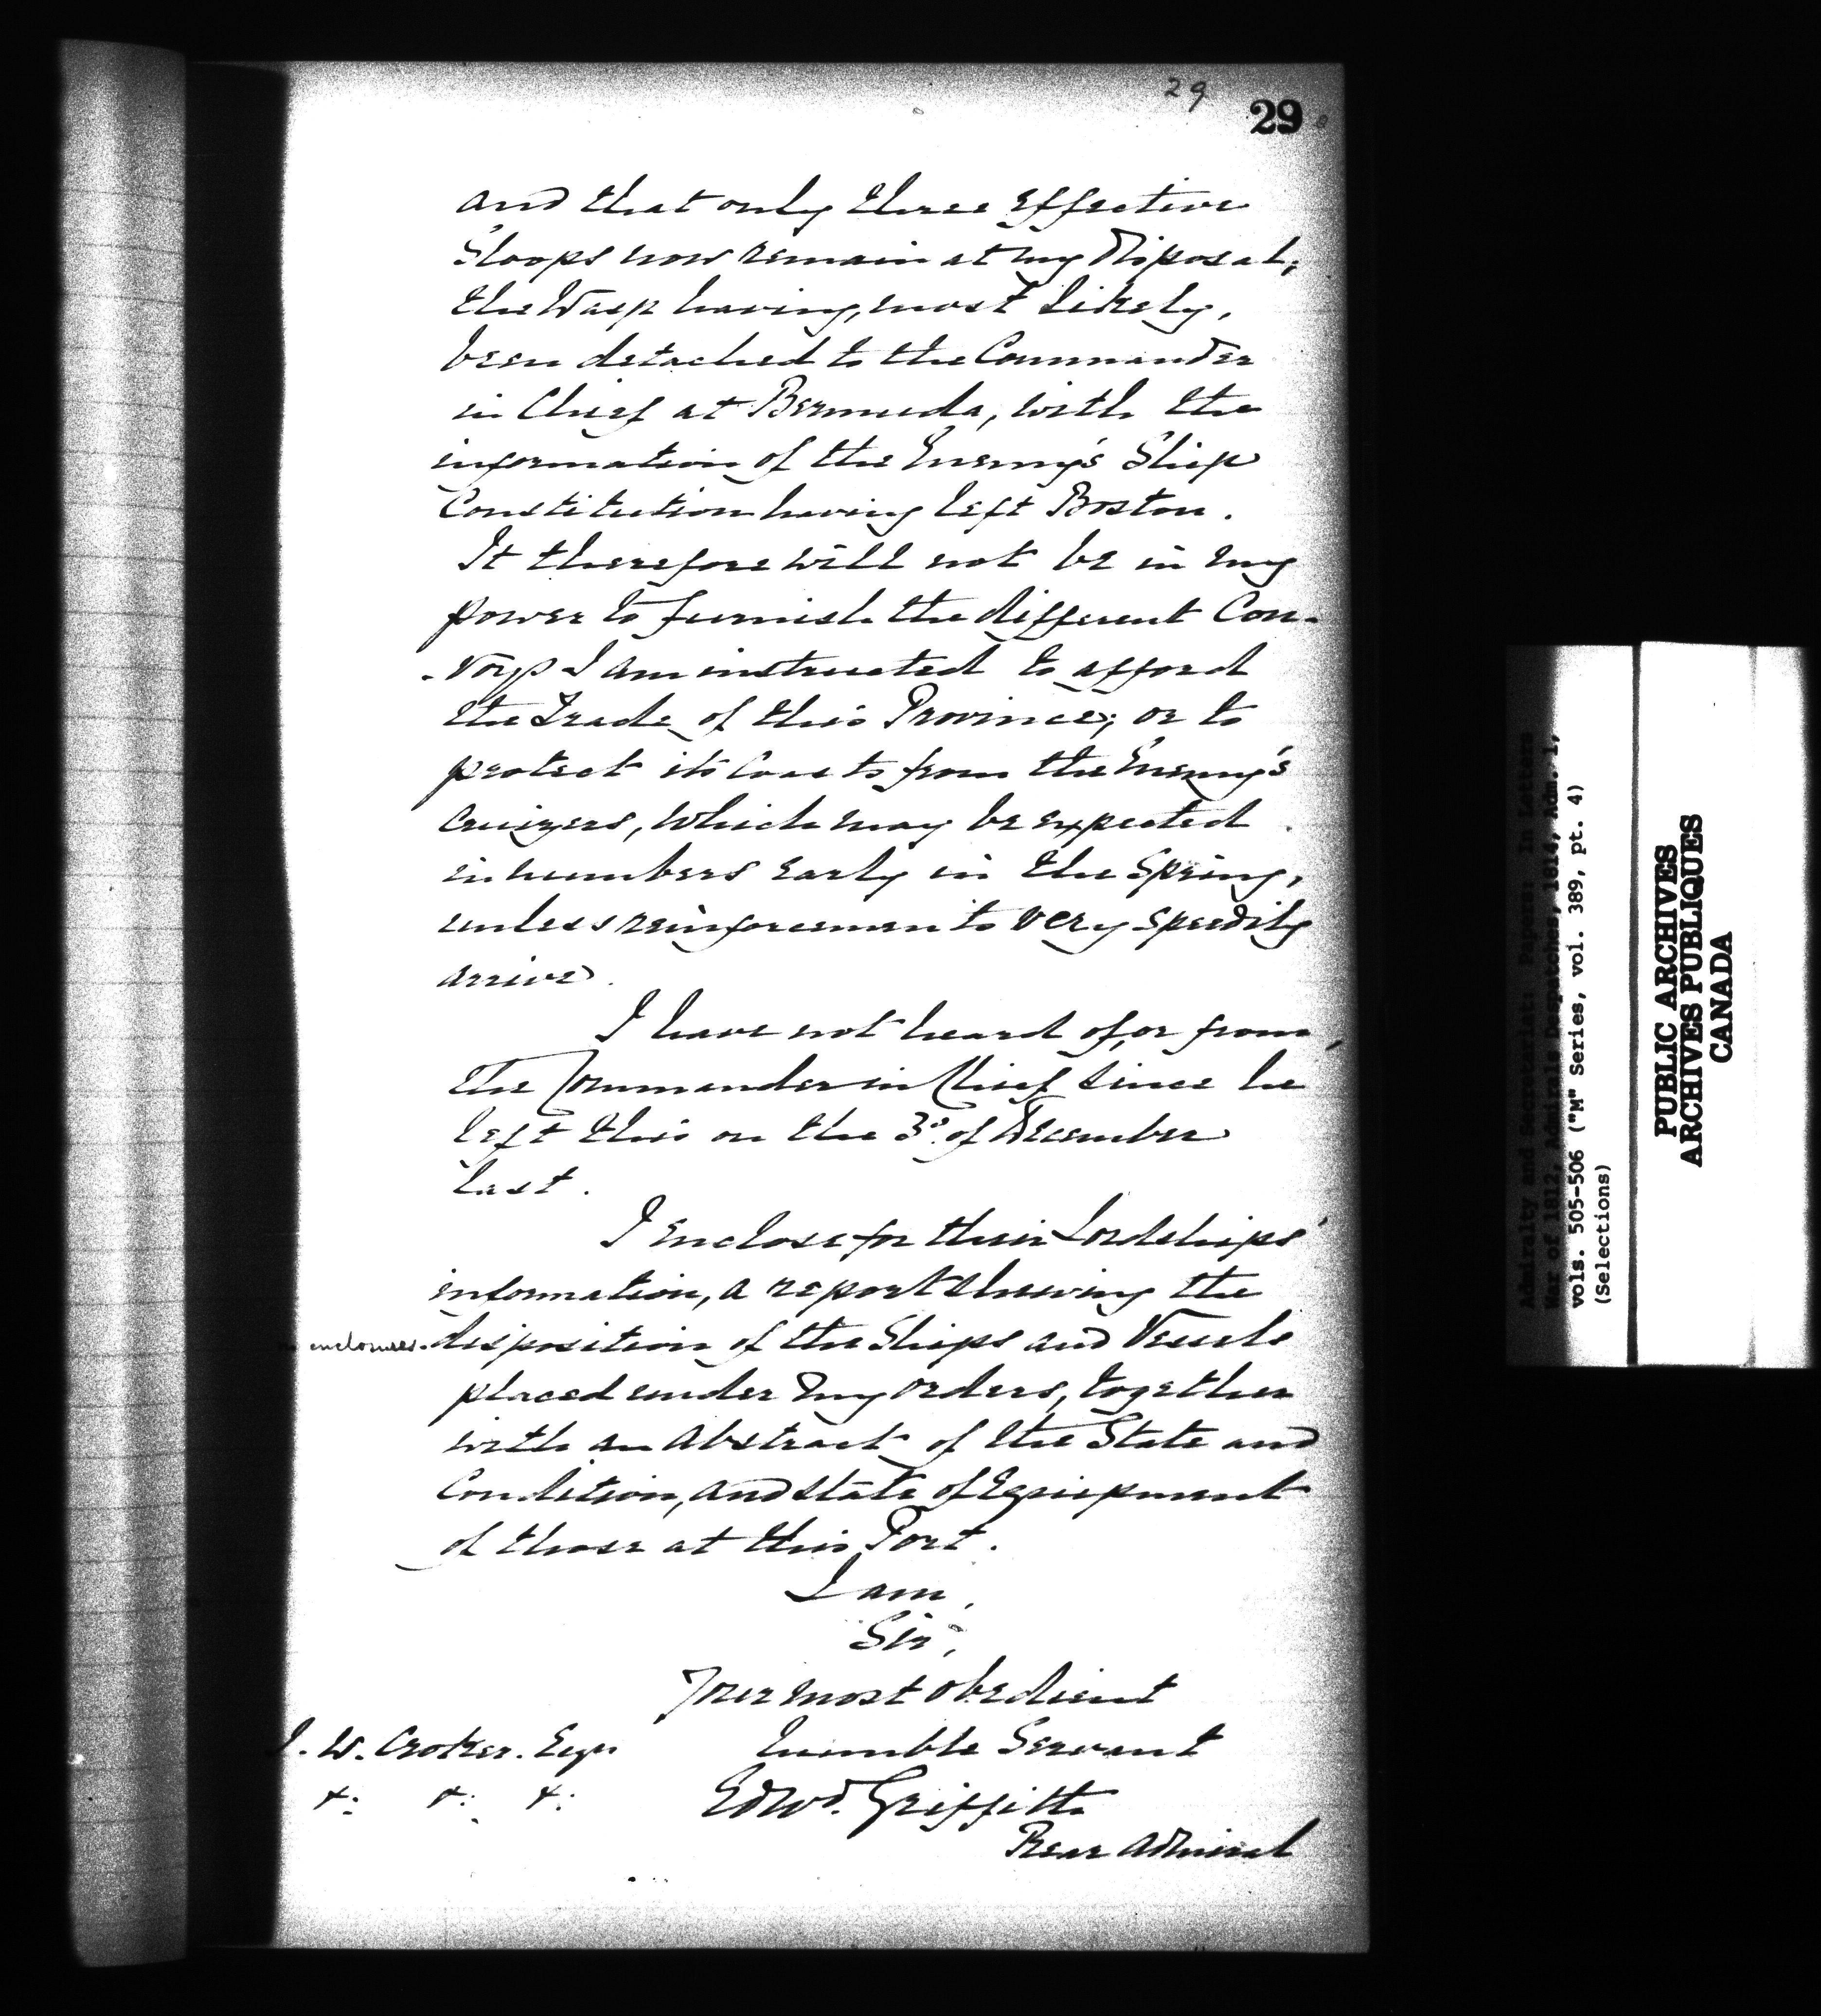 29
29
and that only three effective
Sloops now remain at my Disposal;
the Wasp having, most likely,
been detached to the Commander
in Chief at Bermuda, with the
information of the Enemy's Ship
Constitution having left Boston.
It therefore will not be in my
power to furnish the different Con-
-voys I am instructed to afford
the Trade of this Province; or to
protect its Coasts from the Enemy's
Cruizers, which may be expected
in numbers early in the Spring,
unless reinforcements very speedily
arrive.
I have not heard of, or from,
the Commander in Chief since he
left this on the 3d. of December
last.
I enclose for their Lordships'
information, a report shewing the
enclosures. disposition of the Ships and Vessels
placed under my orders, together
with an Abstract of the State and
Condition, and state of Equipment
of those at this Port.
I am,
Sir,
Your most obedient
humble Servant
J. W. Croker. Esqr
&: &: &:
Edwd. Griffith
Rear Admiral
Admiralty and Secretariat: Papers: In Letters
War of 1812, Admirals Despatches, 1814, Adm. 1,
vols. 505-506 ("M" Series, vol. 389, pt. 4)
(Selections)
PUBLIC ARCHIVES
ARCHIVES PUBLIQUES
CANADA